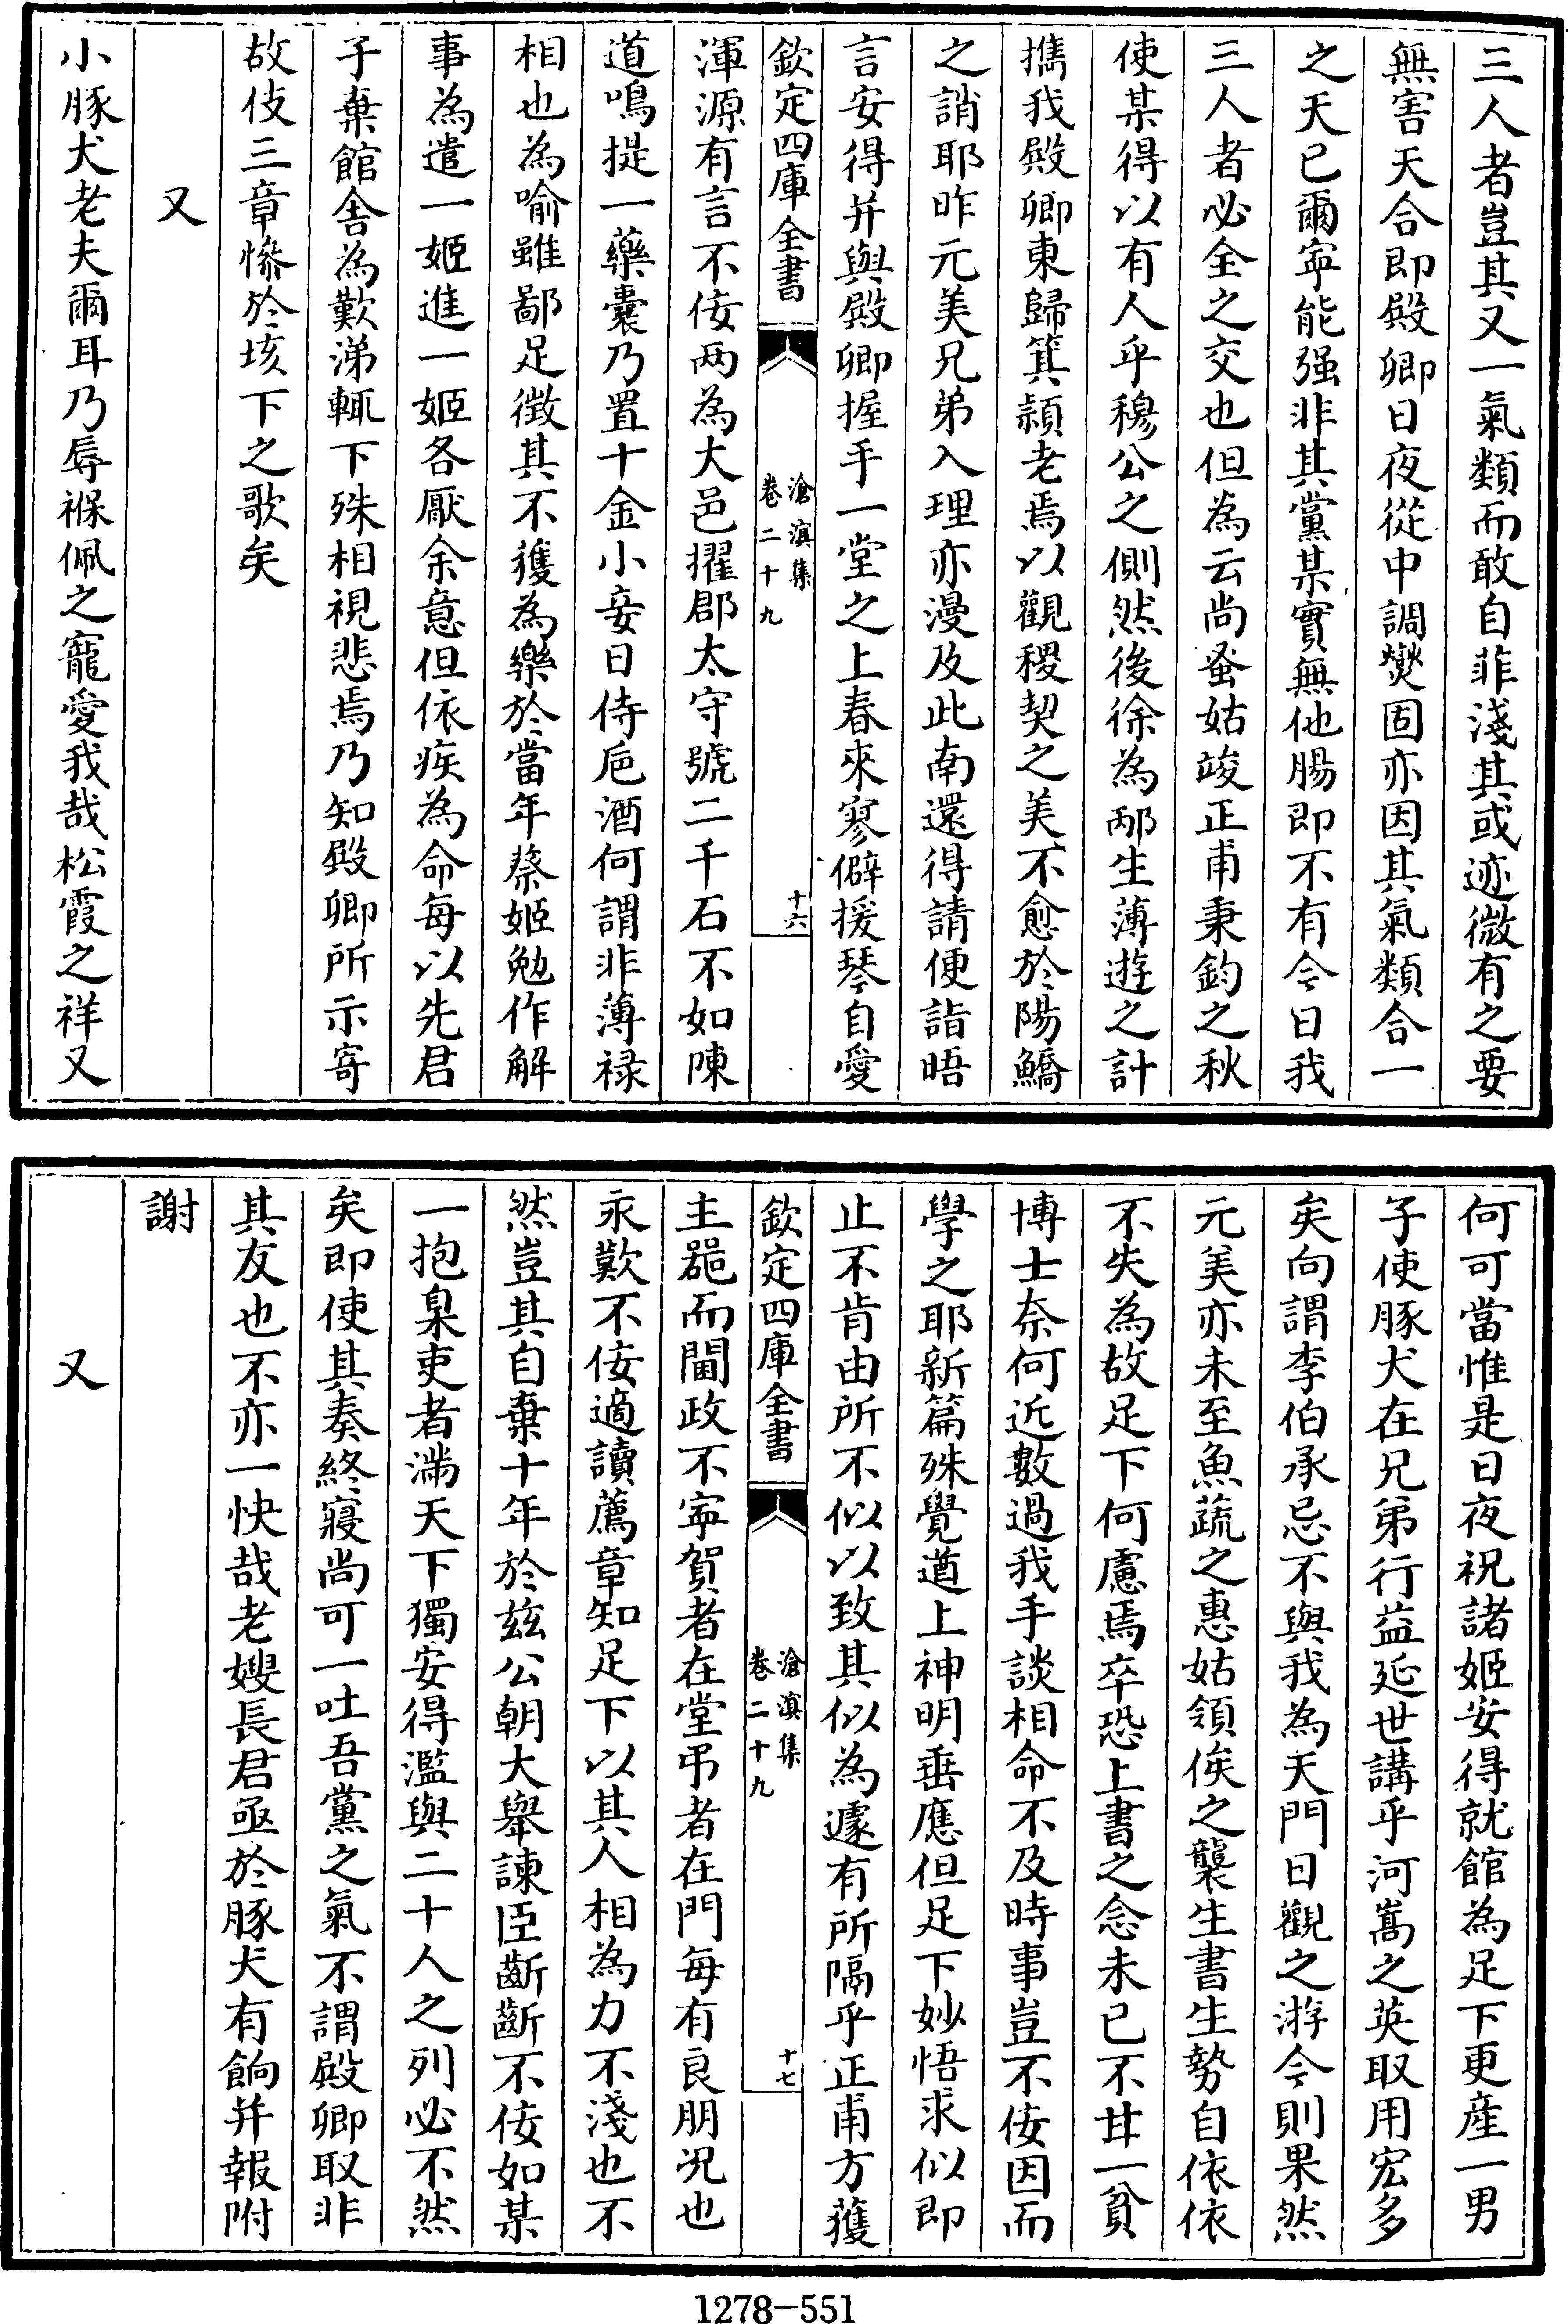 三人者豈其又一氣類而敢自菲淺其或迹微有之要
無害天合即殿卿日夜從中調爕固亦因其氣類合一
之天已爾寧能强非其黨某實無他腸即不有今日我
三人者必全之交也但為云尚蚤姑竣正甫秉鈞之秋
使某得以有人乎穆公之側然後徐為邴生薄遊之計
擕我殿卿東歸箕潁老焉以觀稷契之美不愈於陽鱎
之誚耶昨元美兄弟入理亦漫及此南還得請便詣晤
言安得并與殿卿握手一堂之上春來寥僻援琴自愛
欽定四庫全書
滄溟集
卷二十九
十六
渾源有言不佞两為大邑擢郡太守號二千石不如陳
道鳴提一藥囊乃置十金小妾日侍巵酒何謂非薄禄
相也為喻雖鄙足徵其不獲為樂於當年蔡姬勉作解
事為遣一姬進一姬各厭余意但依疾為命每以先君
子棄館舎為歎涕輙下殊相視悲焉乃知殿卿所示寄
故伎三章慘於垓下之歌矣
又
小豚犬老夫爾耳乃辱褓佩之寵愛我哉松霞之祥又
何可當惟是日夜祝諸姬安得就館為足下更産一男
子使豚犬在兄弟行益延世講乎河嵩之英取用宏多
矣向謂李伯承忌不與我為天門日觀之游今則果然
元美亦未至魚蔬之惠姑領俟之襲生書生勢自依依
不失為故足下何慮焉卒恐上書之念未已不甘一貧
博士奈何近數過我手談相命不及時事豈不佞因而
學之耶新篇殊覺遒上神明垂應但足下妙悟求似即
止不肯由所不似以致其似為遽有所隔乎正甫方獲
欽定四庫全書
滄溟集
卷二十九
十七
主器而閫政不寧賀者在堂弔者在門每有良朋况也
永歎不佞適讀薦章知足下以其人相為力不淺也不
然豈其自棄十年於兹公朝大舉諫臣齗齗不佞如某
一抱臯吏者滿天下獨安得濫與二十人之列必不然
矣即使其奏終寢尚可一吐吾黨之氣不謂殿卿取非
其友也不亦一快哉老嫂長君亟於豚犬有餉并報附
謝
又
1278—551